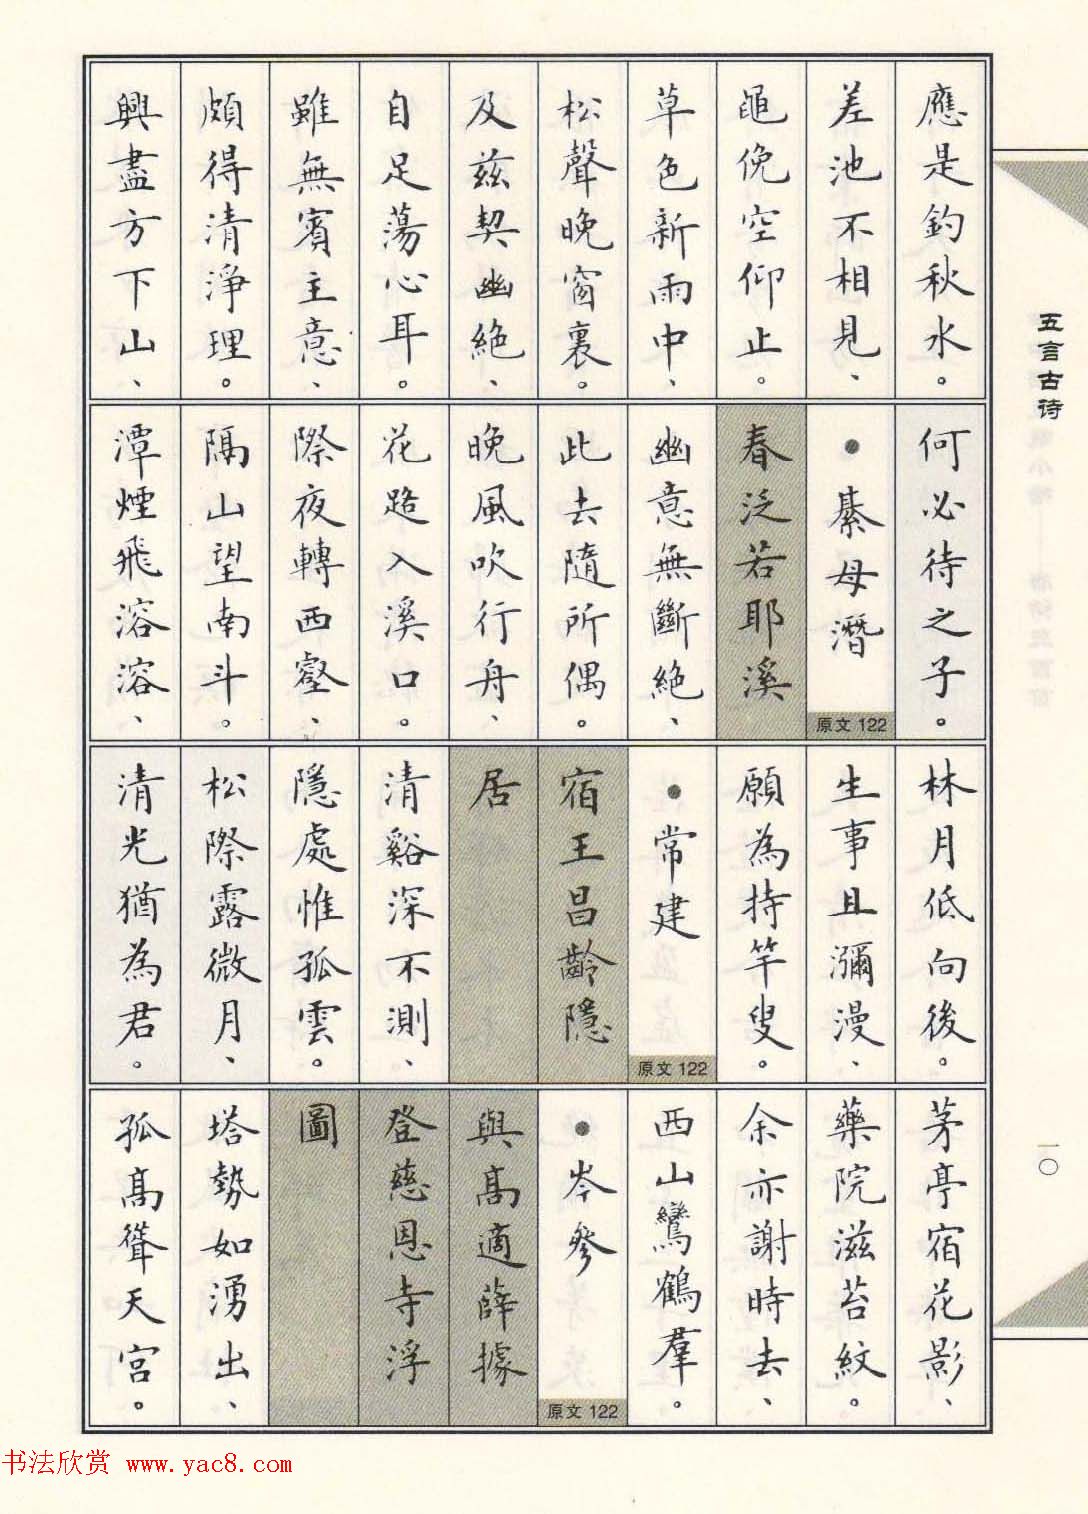 應是釣秋水。
差池不相見、
黽俛空仰止。
草色新雨中、
松聲晚窗裏。
及兹契幽絶、
自足蕩心耳。
雖無賓主意、
頗得清淨理。
興盡方下山、
何必待之子。
●綦母潛
原文 122
春泛若耶溪
幽意無斷絶、
此去隨所偶。
晚風吹行舟、
花路入溪口。
際夜轉西壑、
隔山望南斗。
潭煙飛溶溶、
林月低向後。
生事且瀰漫、
願為持竿叟。
●常建
原文 122
宿王昌齡隱
居
清谿深不測、
隱處惟孤雲。
松際露微月、
清光猶為君。
茅亭宿花影、
藥院滋苔紋。
余亦謝時去、
西山鸞鶴羣。
●岑參
原文 122
與高適薛據
登慈恩寺浮
圖
塔勢如湧出、
孤高聳天宮。
五言古诗
一〇
书法欣赏 www.yac8.com